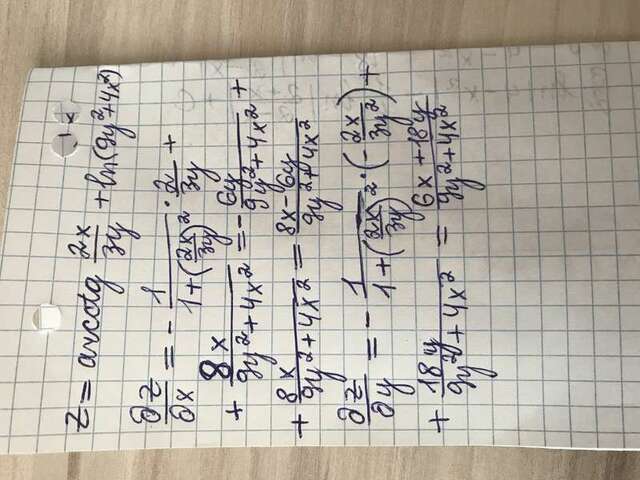 z = arcctg 2x/3y + ln(9y²+4x²)
∂z/∂x = - 1/(1+(2x/3y)²) · 2/3y +
+ 8x/(9y²+4x²) = - 6y/(9y²+4x²) +
+ 8x/(9y²+4x²) = (8x-6y)/(9y²+4x²)
∂z/∂y = - 1/(1+(2x/3y)²) · (-2x/3y²) +
+ 18y/(9y²+4x²) = (6x+18y)/(9y²+4x²)